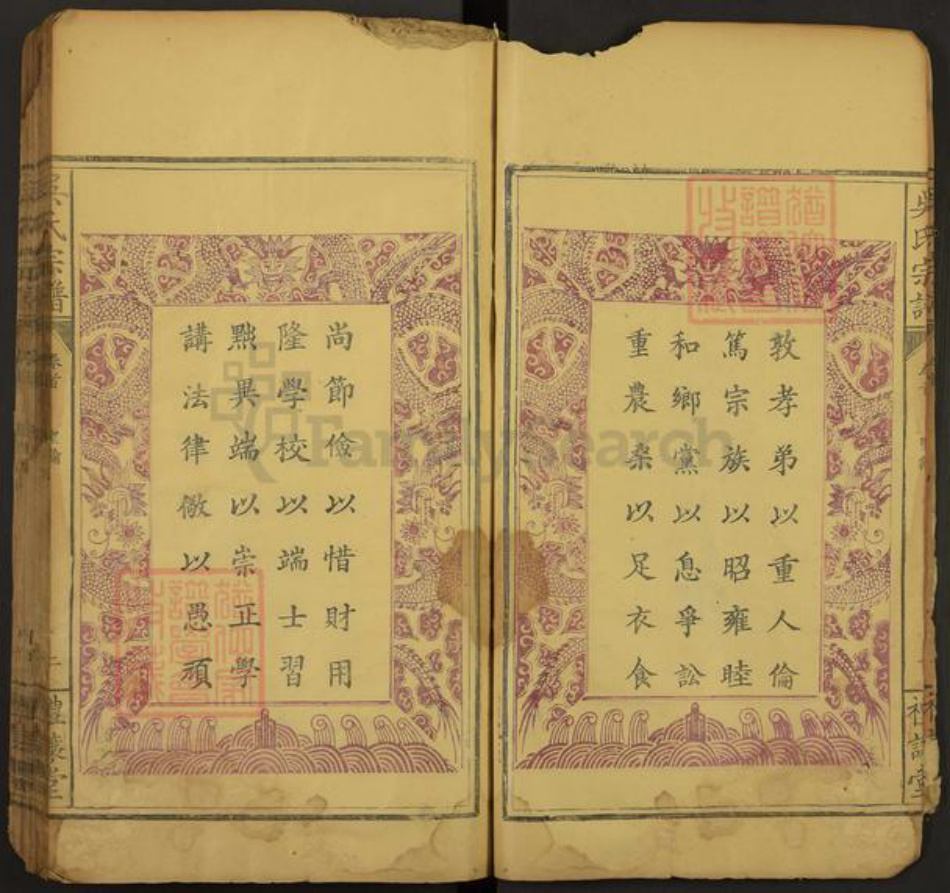 敦孝弟以重人倫
篤宗族以昭雍睦
和鄉黨以息爭訟
重農桑以足衣食
尚節儉以惜財用
隆學校以端士習
黜異端以崇正學
講法律儆以愚頑
吳氏宗譜
禮讓堂
FamilySearch